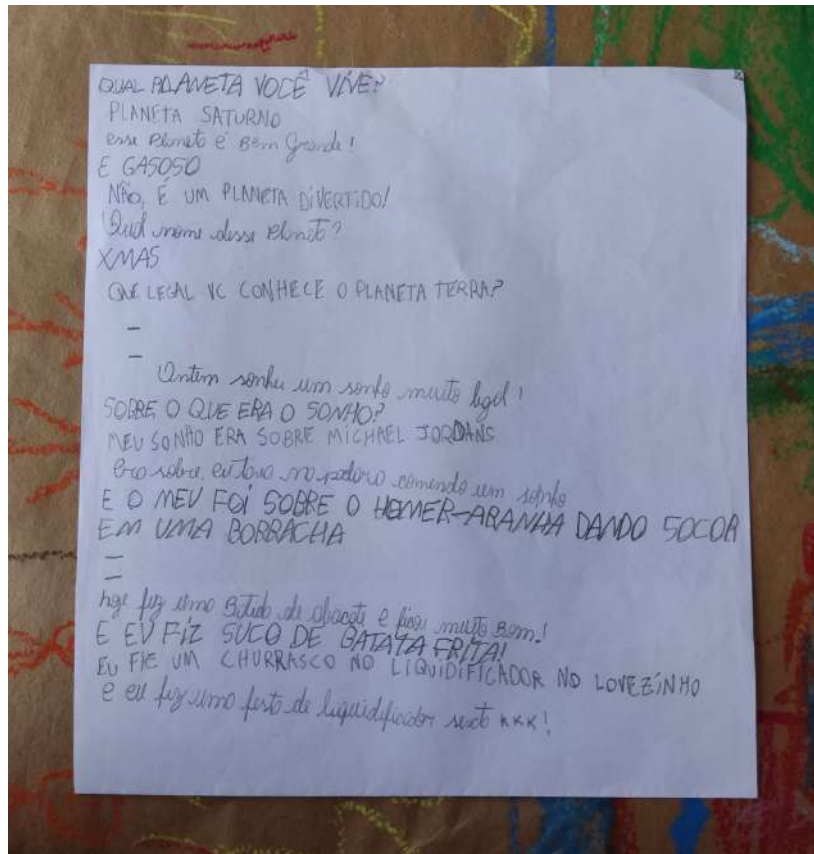 QUAL PLANETA VOCÊ VIVE?
PLANETA SATURNO
esse Planeta é Bem Grande!
E GASOSO
NÃO, É UM PLANETA DIVERTIDO!
Qual nome desse Planeta?
XMAS
QUE LEGAL VC CONHECE O PLANETA TERRA?
–
–
Ontem sonhei um sonho muito legal!
SOBRE O QUE ERA O SONHO?
MEU SONHO ERA SOBRE MICHAEL JORDANS
Era sobre, eu tava na padaria comendo um sonho
E O MEU FOI SOBRE O HOMER-ARANHA DANDO SOCOR
EM UMA BORRACHA
–
–
hoje fiz uma Batida de abacate e ficou muito Bom!
E EU FIZ SUCO DE BATATA FRITA!
EU FIE UM CHURRASCO NO LIQUIDIFICADOR NO LOVEZINHO
e eu fiz uma festa de liquidificador kkk!